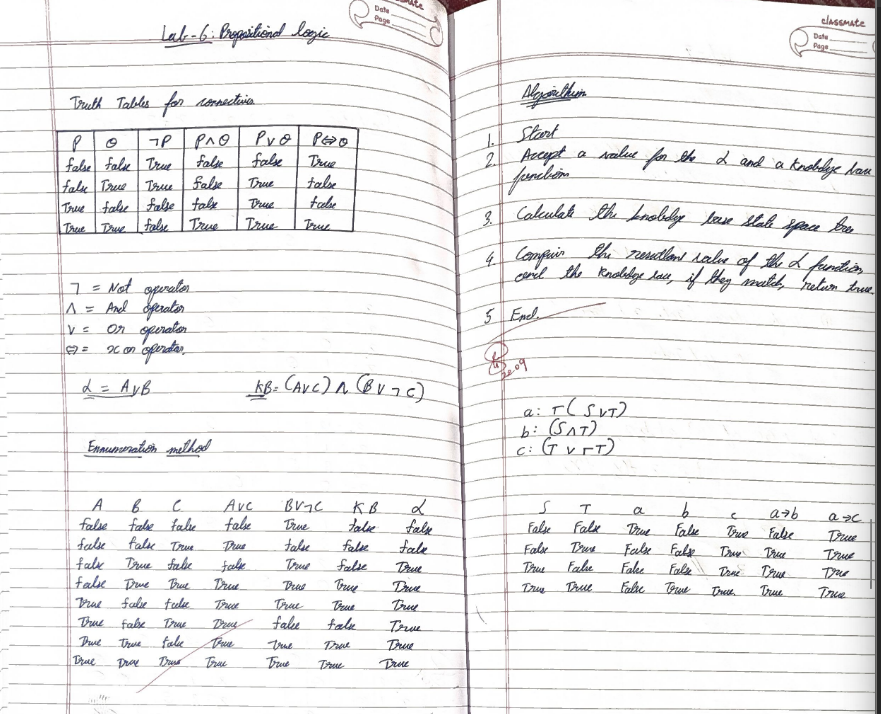 Date
Page
Lab-6: Propositional logic
Truth Tables for connectives
P Q ¬P P∧Q P∨Q P⇔Q
false false True false false True
false True True false True false
True false false false True false
True True false True True True
¬ = Not operator
∧ = And operator
∨ = Or operator
⇔ = xor operator.
α = A∨B KB = (A∨C) ∧ (B∨¬C)
Ennumeration method
A B C A∨C B∨¬C KB α
false false false false True false false
false false True True false false false
false True false false True false True
false True True True True True True
True false false True True True True
True false True True false false True
True True false True True True True
True True True True True True True
classmate
Date
Page
Algorithm
1. Start
2. Accept a value for the α and a knowledge base
function
3. Calculate the knowledge base state space tree
4. Compare the resultant value of the α function
and the knowledge base, if they match, return true.
5 End.
a: ¬(S∨T)
b: (S∧T)
c: (T∨¬T)
S T a b c a→b a→c
False False True False True False True
False True False False True True True
True False False False True True True
True True False True True True True